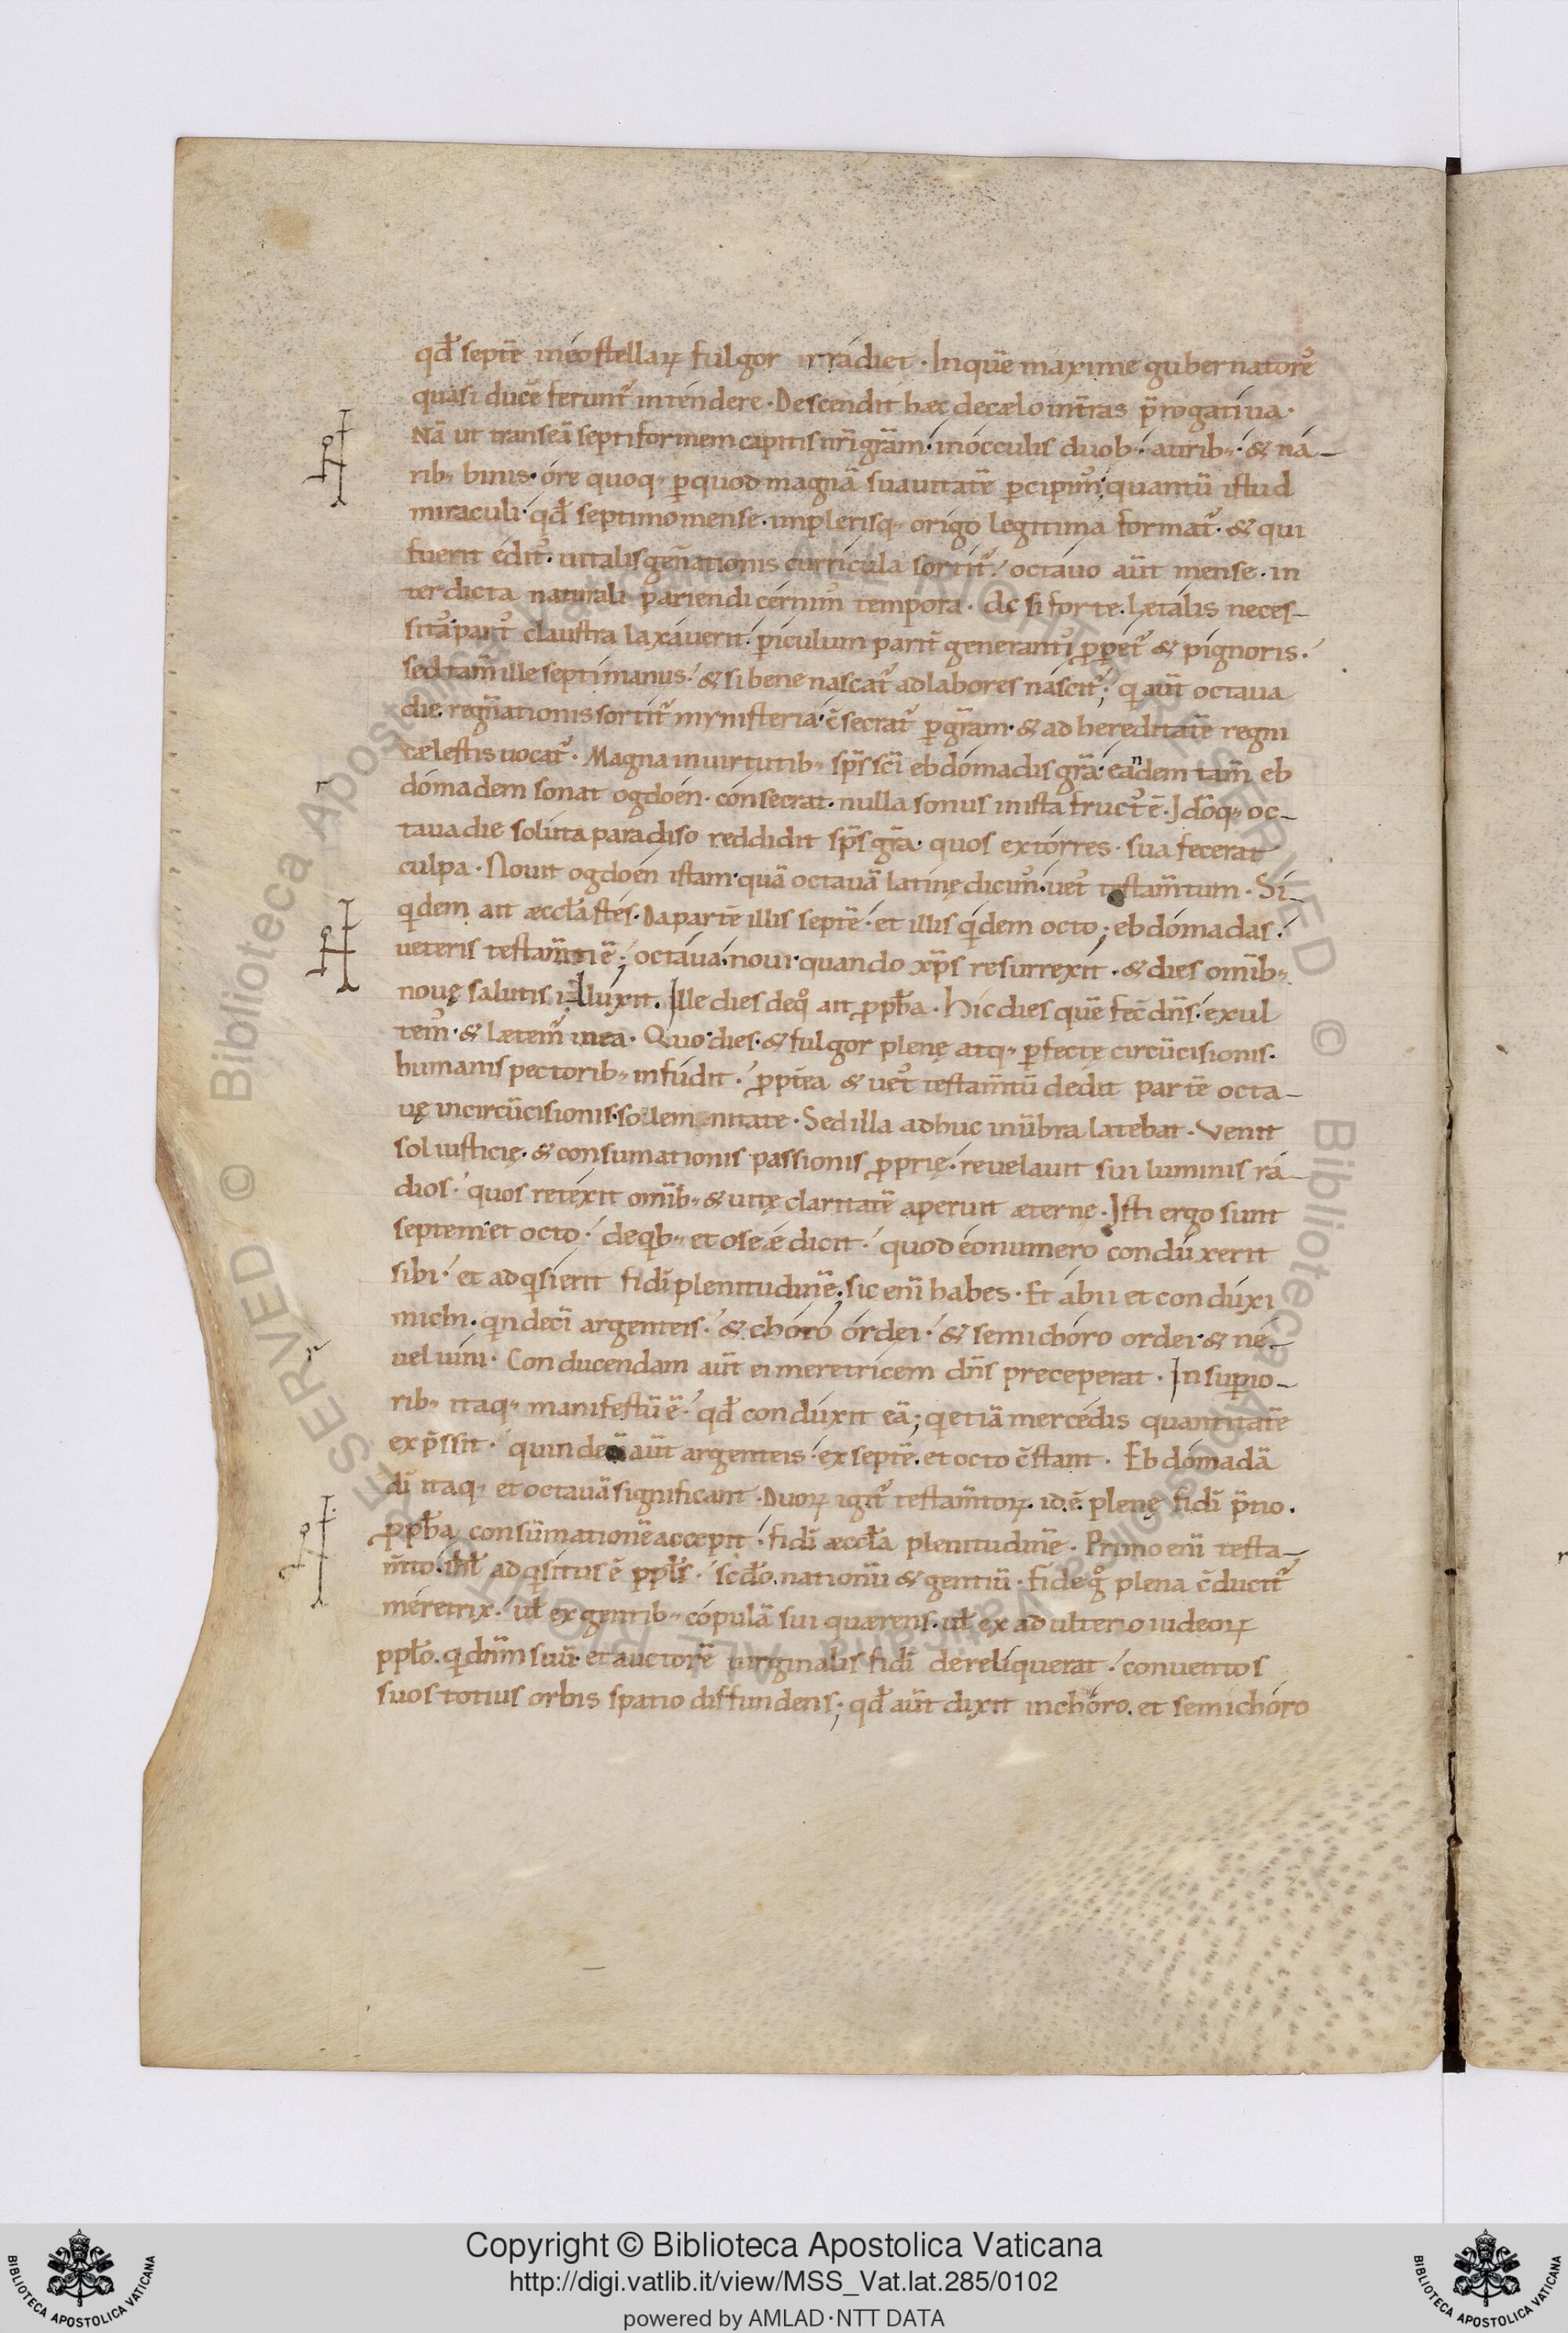 qđ septē in eo stellaꝝ fulgor irradiet · In quē maxime gubernatorē
quasi ducē ferunt᷑ intendere · Descendit hæc de cælo int̄ ras p̄rogatiua ·
Nā ut transeā septiformem capitis nr̄i gr̄am · in occulis duob; · aurib; · & na-
rib; binis · ore quoq; ꝑ quod magnā suauitatē ꝑcipim᷒; quantū istud
miraculi · qđ septimo mense · implerisq; origo legitima format᷑ · & qui
fuerit edit᷒ · uitalis gen̄ationis curricula sortit᷑ · octauo aūt mense · in
terdicta naturali pariendi cernim᷒ tempora · Ac si forte · lætalis neces-
sitas part᷒ claustra laxauerit · ꝑiculum parit᷑ generantis ꝓpet᷑ & pignoris ·
sed tam̄ ille septimanus · & si bene nascat᷑ ad labores nascit᷑; q aūt octaua
die regn̄ationis sortit᷑ mynisteria · c̄secrat᷑ ꝑ gr̄am · & ad hereditatē regni
cælestis uocat᷑ · Magna in uirtutib; sp̄s sc̄i ebdomadis gr̄a · eandem tam̄ eb
domadem sonat ogdoen · consecrat · nulla sonus in ista fruct᷒ ē · Idoq; oc-
taua die soluta paradiso reddidit sp̄s gr̄a · quos extorres · sua fecerat
culpa · Nouit ogdoen istam · quā octauā latinę dicim᷒ · uet᷒ testam̄tum · Si-
qdem ait æccl̄astes · Da partē illis septē · et illis qdem octo; ebdomadas ·
ueteris testam̄ti ē; octaua · noui · quando xp̄s resurrexit · & dies omīb;
nouę salutis illuxit. Ille dies de qͦ ait ꝓph̄a · Hic dies quē fec̄ dn̄s · exul
tem᷒ · & lætem᷑ in ea · Quo dies · & fulgor plenę atq; ꝑfectę circūcisionis ·
humanis pectorib; infudit · ꝓpt̄ea & uet᷒ testam̄tū dedit partē octa-
uę in circūcisionis · solemnitate · Sed illa adhuc in ūbra latebat · Venit
sol iusticię · & consumationis passionis ꝓprię · reuelauit sui luminis ra-
dios · quos retexit omīb; & uitę claritatē aperuit æternę · Isti ergo sunt
septem · et octo · de qb; et oseæ dicit · quod eo numero conduxerit
sibi · et adqsierit fidī plenitudinē; sic enī habes · Et abii et conduxi
michi · qndecī argenteis · & choro ordei · & semichoro ordei · & ne-
uel uini · Conducendam aūt ei meretricem dn̄s preceperat · In supio-
rib; itaq; manifestū ē · qđ conduxit eā; q etiā mercedis quantitatē
exp̄ssit · quindecī aūt argenteis · ex septē · et octo c̄stant · Ebdomadā
di itaq; et octauā significant · Duoꝝ igit᷑ testam̄toꝝ · id ē · plenę fidī p̄tio ·
ꝓph̄a consūmationē accepit · fidī æccl̄a plenitudinē · Primo enī testa-
m̄to · ihl̄ adqsitus ē ppl̄s · sc̄do · nationū & gentiū · fide qͦ plena c̄ducit᷑
meretrix · ul̄ ex gentib; copulā sui quærens · ul̄ ex adulterio iudeoꝝ
ppl̄o · q dn̄m suū · et auctorē uirginalis fidī dereliquerat · conuentos
suos totius orbis spatio diffundens; qđ aūt dixit in choro · et semichoro
Copyright © Biblioteca Apostolica Vaticana
http://digi.vatlib.it/view/MSS_Vat.lat.285/0102
powered by AMLAD·NTT DATA